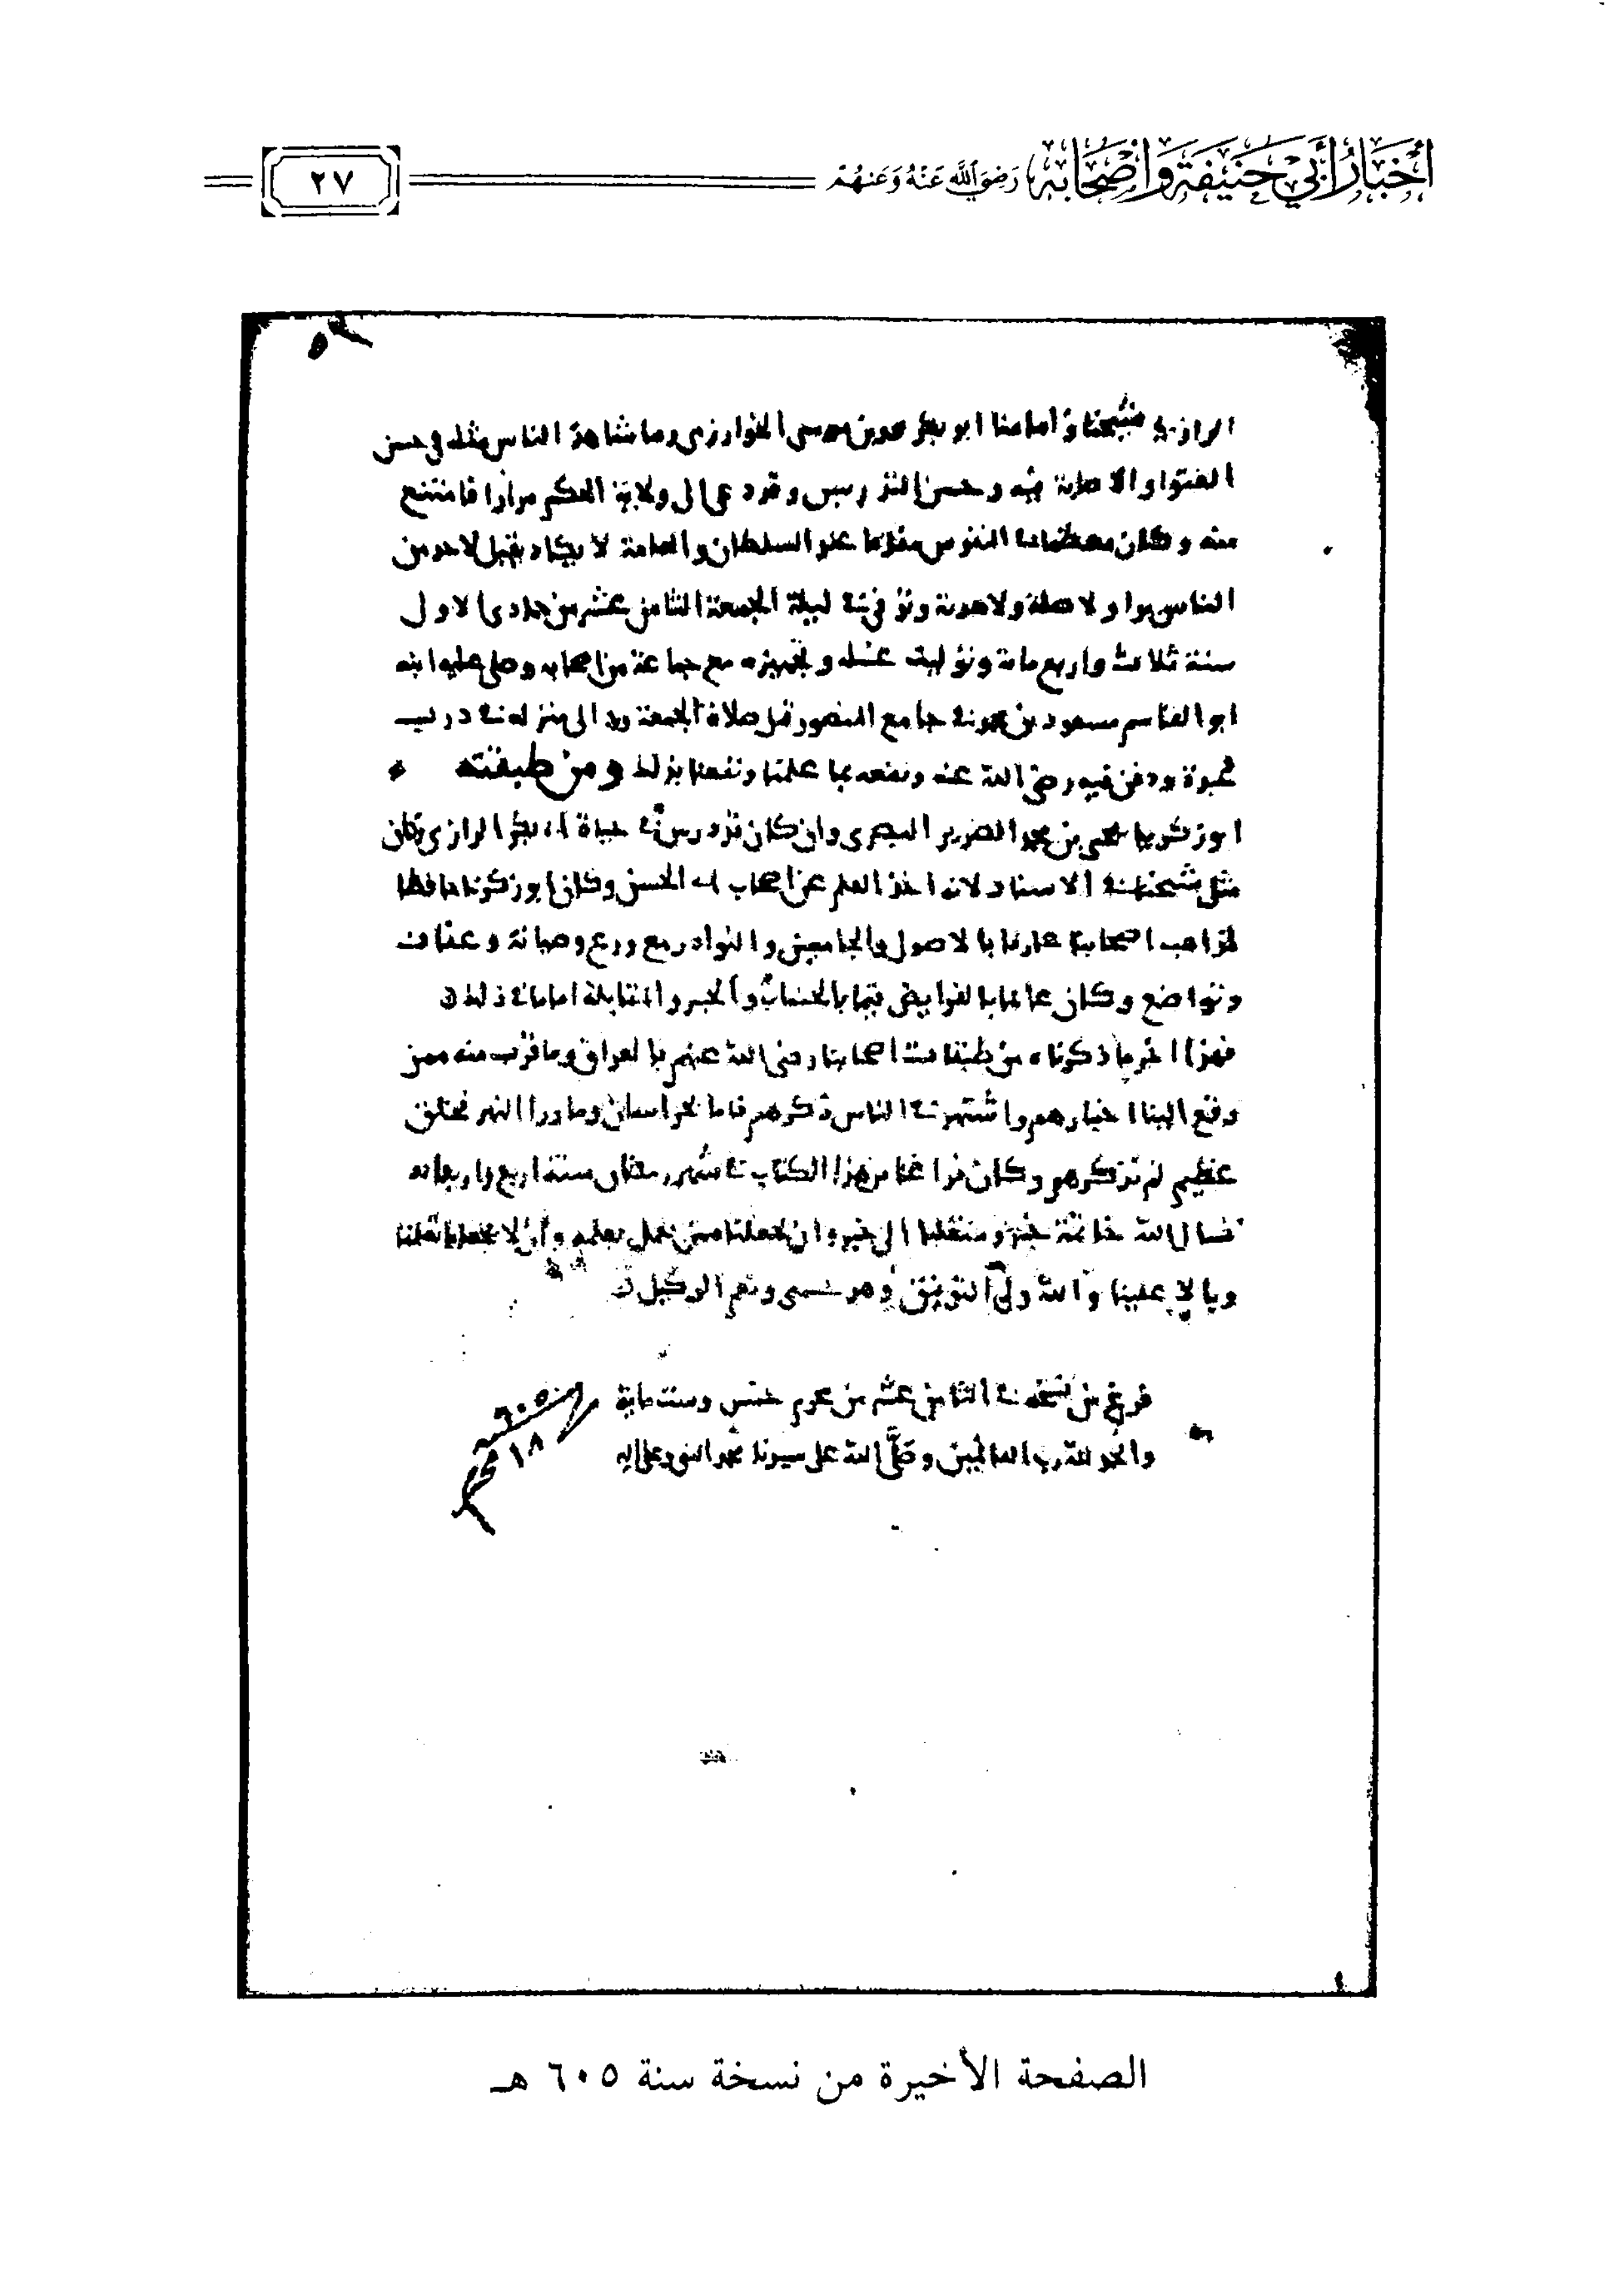 أَخْبَارُ أَبِي حَنِيفَةَ وَأَصْحَابِهِ رَضِيَ اللَّهُ عَنْهُ وَعَنْهُمْ
٢٧
الرازي شيخنا وامامنا ابو بكر محمد بن موسى الخوارزمي وما شاهد الناس مثله في حسن
الفتوا والاصابة فيه وحسن التدريس وقد دعي الى ولاية الحكم مرارا فامتنع
منه وكان معظما في النفوس مقدما عند السلطان والعامة لا يكاد يقبل لاحد من
الناس برا ولا صلة ولا هدية وتوفي في ليلة الجمعة الثامن عشر من جمادى الاول
سنة ثلاث واربع ماية وتوليت غسله وتجهيزه مع جماعة من اصحابه وصلى عليه ابنه
ابو القاسم مسعود بن محمد في جامع المنصور قبل صلاة الجمعة ورد الى منزله في درب
عبدة ودفن فيه رضى الله عنه ونفعه بما علمنا ونفعنا بذلك ومن طبقته
ابو زكريا يحيى بن محمد الضرير البصرى وان كان قد درس في حياة ابى بكر الرازي وكان
مثل شيخنا في الاسناد لانه اخذ العلم عن اصحاب ابى الحسن وكان ابو زكريا حافظا
لمذاهب اصحابنا عارفا بالاصول والجامعين والنوادر مع ورع وصيانة وعفاف
وتواضع وكان عالما بالفرايض قيما بالحساب والجبر والمقابلة اماما في ذلك
فهذا اخر ما ذكرناه من طبقات اصحابنا رضى الله عنهم بالعراق وما قرب منه ممن
وقع الينا اخبارهم واشتهر في الناس ذكرهم فاما بخراسان وما ورا النهر فخلق
عظيم لم نذكرهم وكان فراغنا من هذا الكتاب في شهر رمضان سنة اربع واربعماية
نسال الله خاتمة خير ومنقلبا الى خير وان يجعلنا ممن عمل بعلمه وان لا يجعل ما تعلمنا
وبالا علينا والله ولي التوفيق وهو حسبى ونعم الوكيل
فرغ من نسخه في الثامن عشر من محرم خمس وستماية
والحمد لله رب العالمين وصلَّى الله على سيدنا محمد النبي وعلى اله
٦٠٥
١٨ محرم
الصفحة الأخيرة من نسخة سنة ٦٠٥ هـ